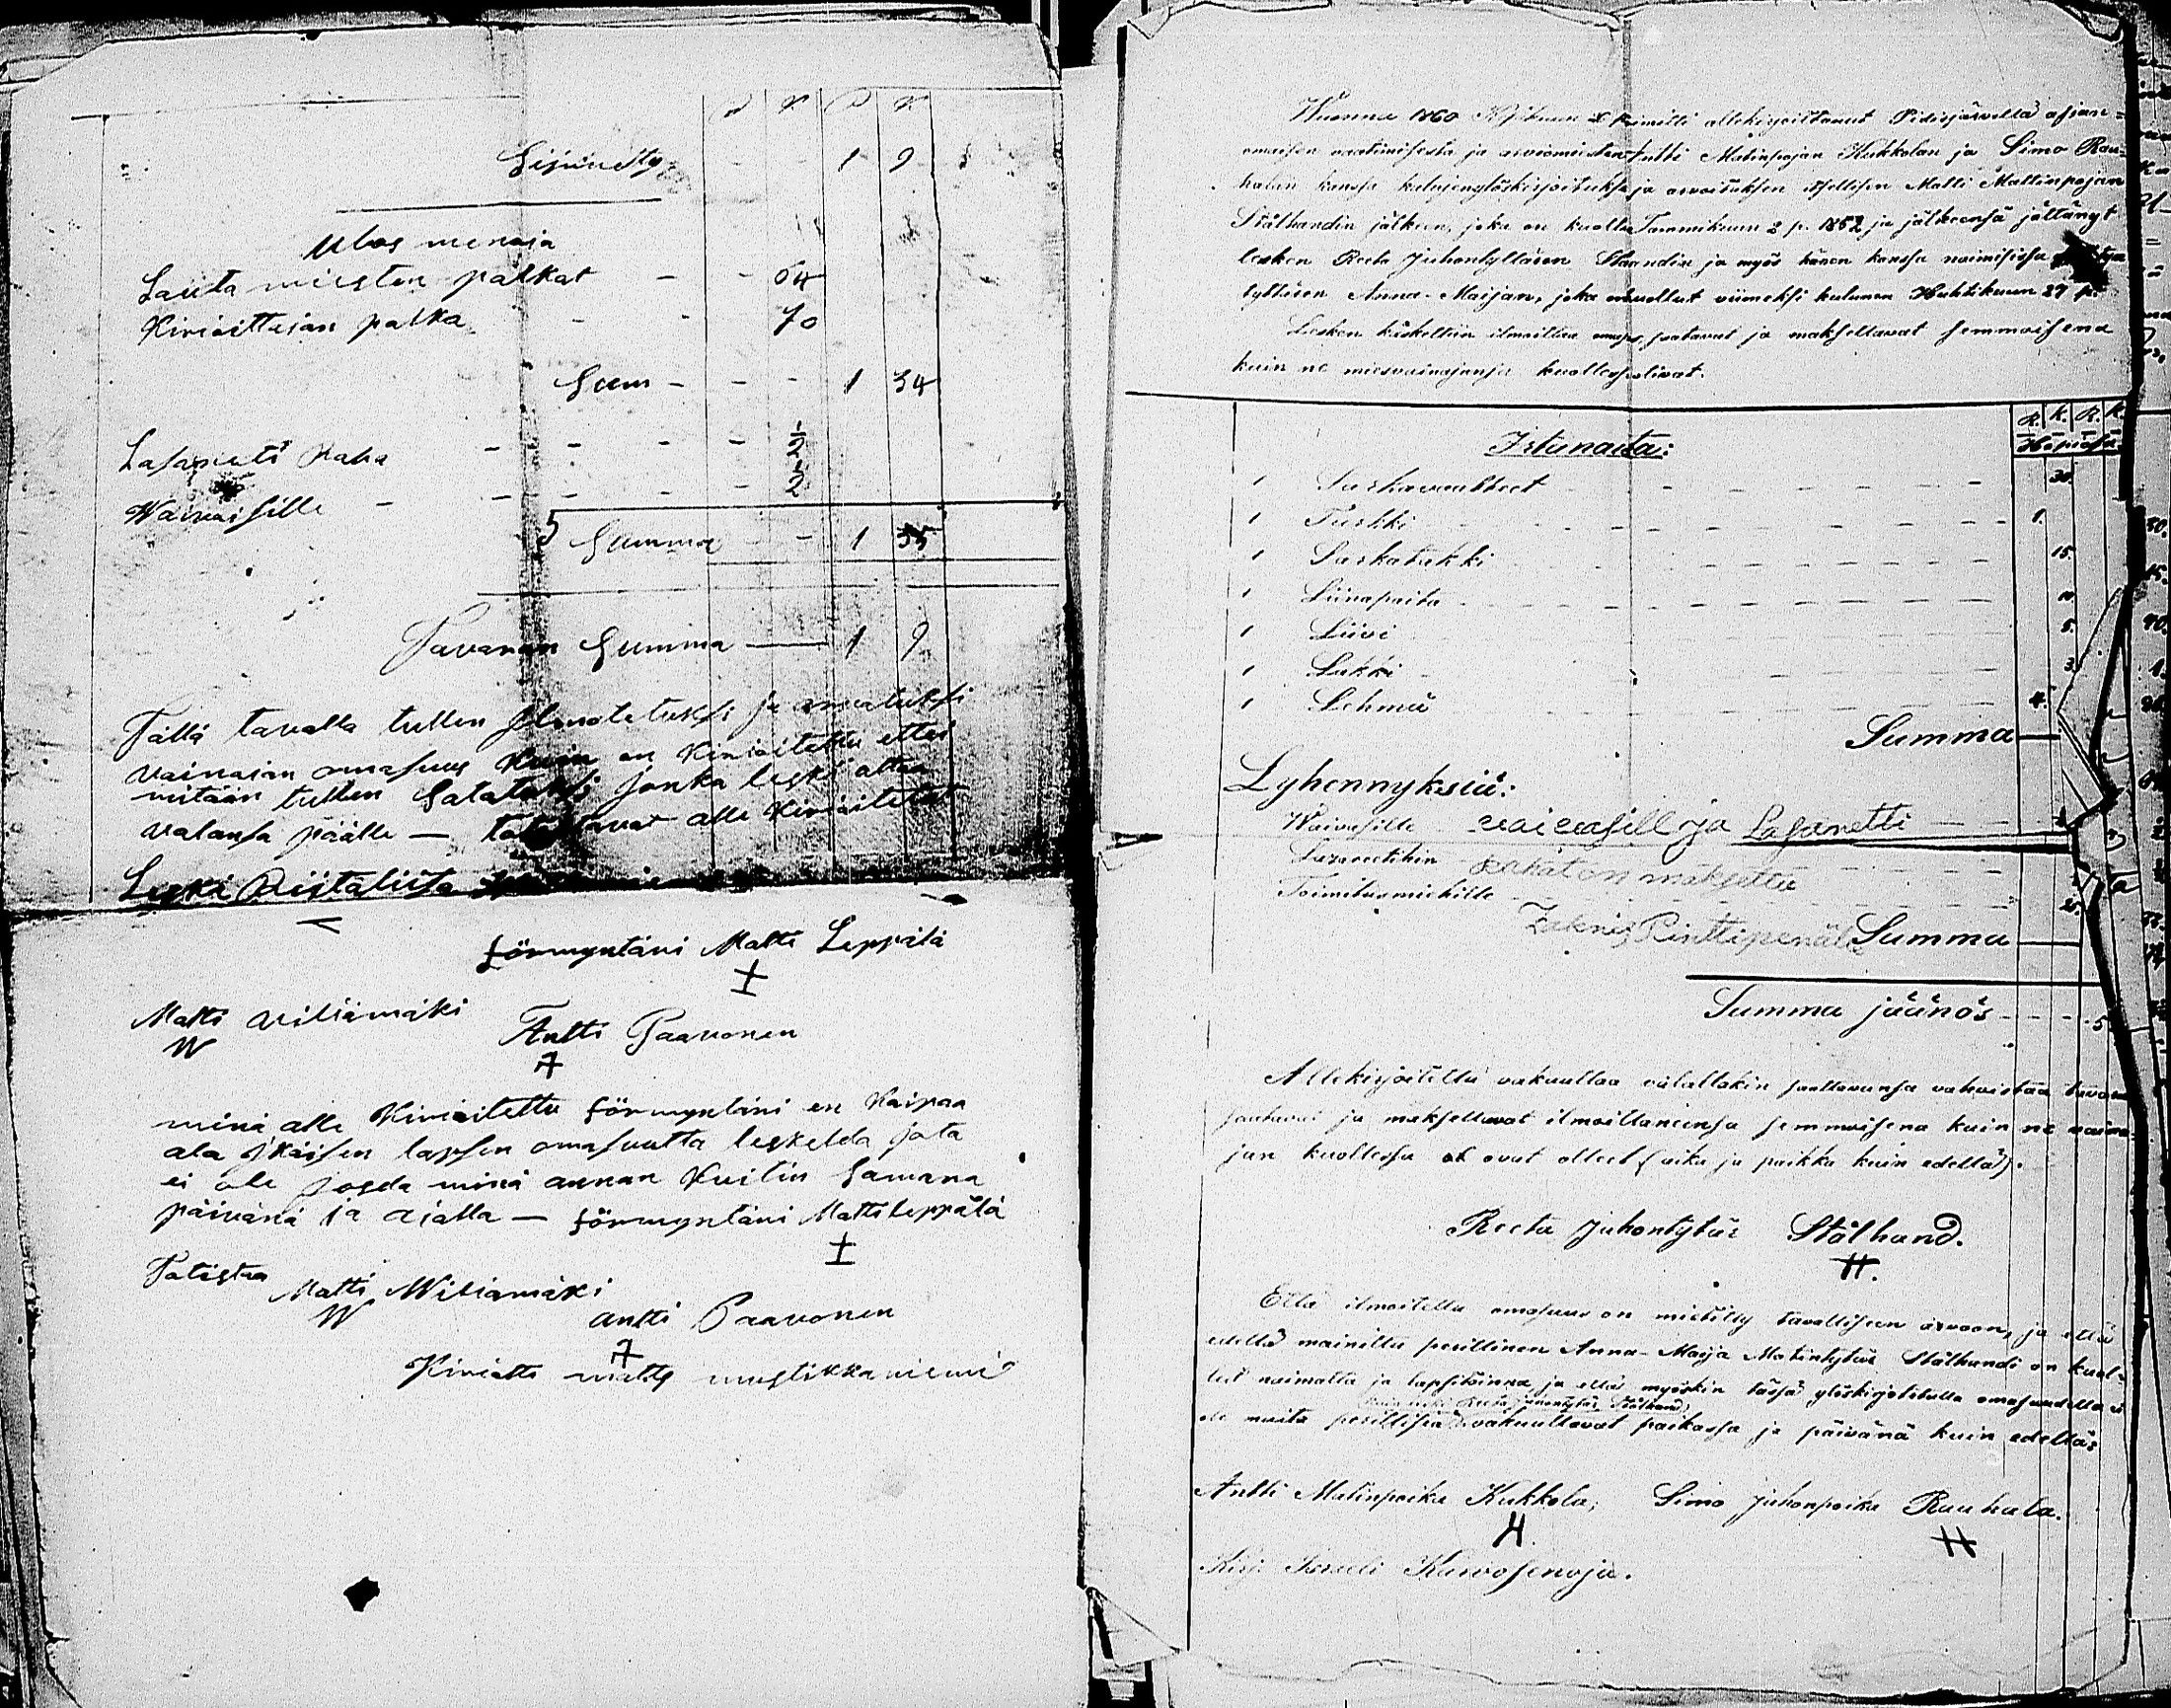 Siirretty - - 1 9
Ulos menoja
Lauta miesten palkat - - 64
Kirioittajan palka - - 70
Sum - - - 1 34
Lasareti Raha - - - - 1/2
Waivaisille - - - - - 1/2
Summa - - 1 35
Tavaran Summa — 1 9
Tällä tavalla tullen ja
vainaian omasuus Kuin on Kirioitettu ettei
mitään tullen Salatuksi jonka leski ottaa
valansa päälle — alle Kirioitetut
Leski
förmyntäri Matti Leppälä
Matti Wiliamäki
W
Antti Paavonen
A
minä alle Kirioitettu förmyntäri en Kaipaa
ala jkäisen lapsen omasuutta leskeldä jota
ei ole josda minä annan Kuitin Samana
päivänä ja aialla — förmyntäri Matti Leppälä
Totistaa
Matti Wiliamäki
W
antti Paavonen
A
Kirioitti matts mustikkaniemi
Wuonna 1860 allekirjoittanut Pidisjärvellä asian=
omaisen vaatimisesta ja arviomiesten Antti Matinpojan Kukkolan ja Simo Rau=
halan kanssa kalujenylöskirjoituksen ja arvoituksen itsellisen Matti Mattinpojan
Stålhandin jälkeen, joka on kuollut Tammikuun 2 p. 1852 ja jälkeensä jättänyt
lesken Reeta Juhontyttären Stålhandin ja myös hänen kanssa naimisissa
tyttären Anna-Maijan, joka on kuollut viimeksi kuluneen Huhtikuun 27 p.
Lesken käskettiin ilmoittaa omaisuus, saatavat ja maksettavat semmoisena
kuin ne miesvainajansa kuollessa olivat.
R. K. R. K.
Irtunaita: Hopiassa.
1 Sarkavaatteet - - - - 30.
1 Turkki - - - - 1.
1 Sarkatakki - - - - 15.
1 Liinapaita - - - - 10.
1 Liivi - - - - 5.
1 Lakki - - - - 3.
1 Lehmä - - - - 4.
Summa —
Lyhennyksiä:
Waivasille vaivasille ja Lasaretti
Lazarettihin rahat on maksettu
Toimitusmiehille - - - - 25.
Summa —
Summa jäänös - - - - 5
Allekirjoitettu vakuuttaa valallakin saattavansa vahvistaa tavarat
saatavat ja maksettavat ilmoittaneensa semmoisena kuin ne vaina=
jan kuollessa ovat olleet (aika ja paikka kuin edellä).
Reeta Juhontytär Stålhand.
H.
Että ilmoitettu omasuus on mietitty tavalliseen arvoon, ja että
edellä mainittu perillinen Anna-Maija Matintytär Stålhandi on kuol=
lut naimatta ja lapsitoinna, ja että myöskin tässä ylöskirjoitetulla omasuudella ei
kuin leski Reeta Juhontytär Stålhand,
ole muita perillisiä vakuuttavat paikassa ja päivänä kuin edellä:
Antti Matinpoika Kukkola, Simo Juhonpoika Rauhala.
H. H
Kirj. Israeli Kaivosenoja.